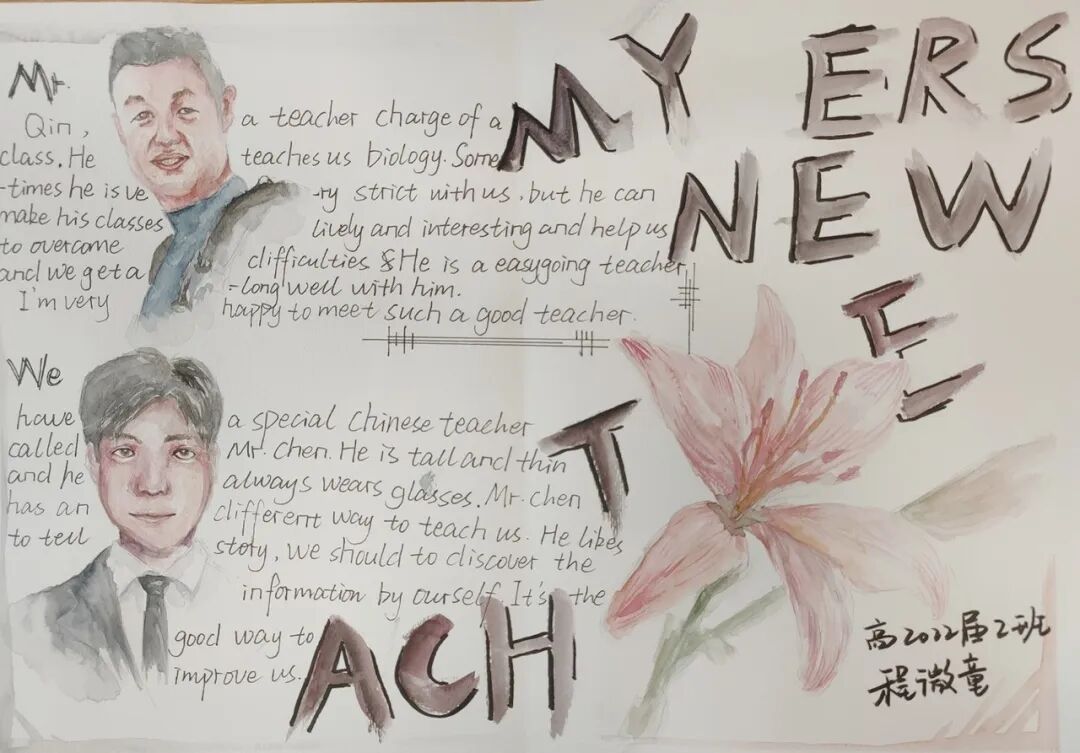 MY NEW TEACHERS
Mr.
Qin, a teacher charge of a
class. He teaches us biology. Some
-times he is ve -ry strict with us. but he can
make his classes lively and interesting and help us
to overcome difficulties & He is a easygoing teacher,
and we get a -long well with him.
I'm very happy to meet such a good teacher.
We
have a special Chinese teacher
called Mr. Chen. He is tall and thin
and he always wears glasses. Mr. chen
has an different way to teach us. He likes
to tell story, we should to discover the
information by ourself. It's the
good way to
improve us.
高2022届2班
程微童